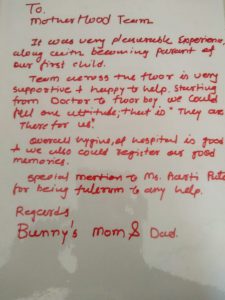 To,
MotherHood Team
It was very pleasurable Experience,
along with becoming parent of
our first child.
Team across the floor is very
supportive & happy to help. Starting
from Doctor to floor boy, we could
feel one attitude, that is "They are
There for us".
Overall hygine, of hospital is good
& we also could register our good
memories.
special mention to Ms. Aarti
for being fulcrum to any help.
Regards
Bunny's Mom & Dad.